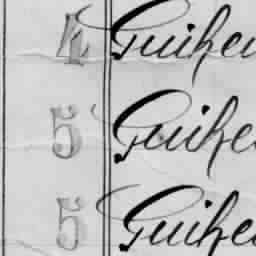 4 Guihen
5 Guihe
5 Guihe